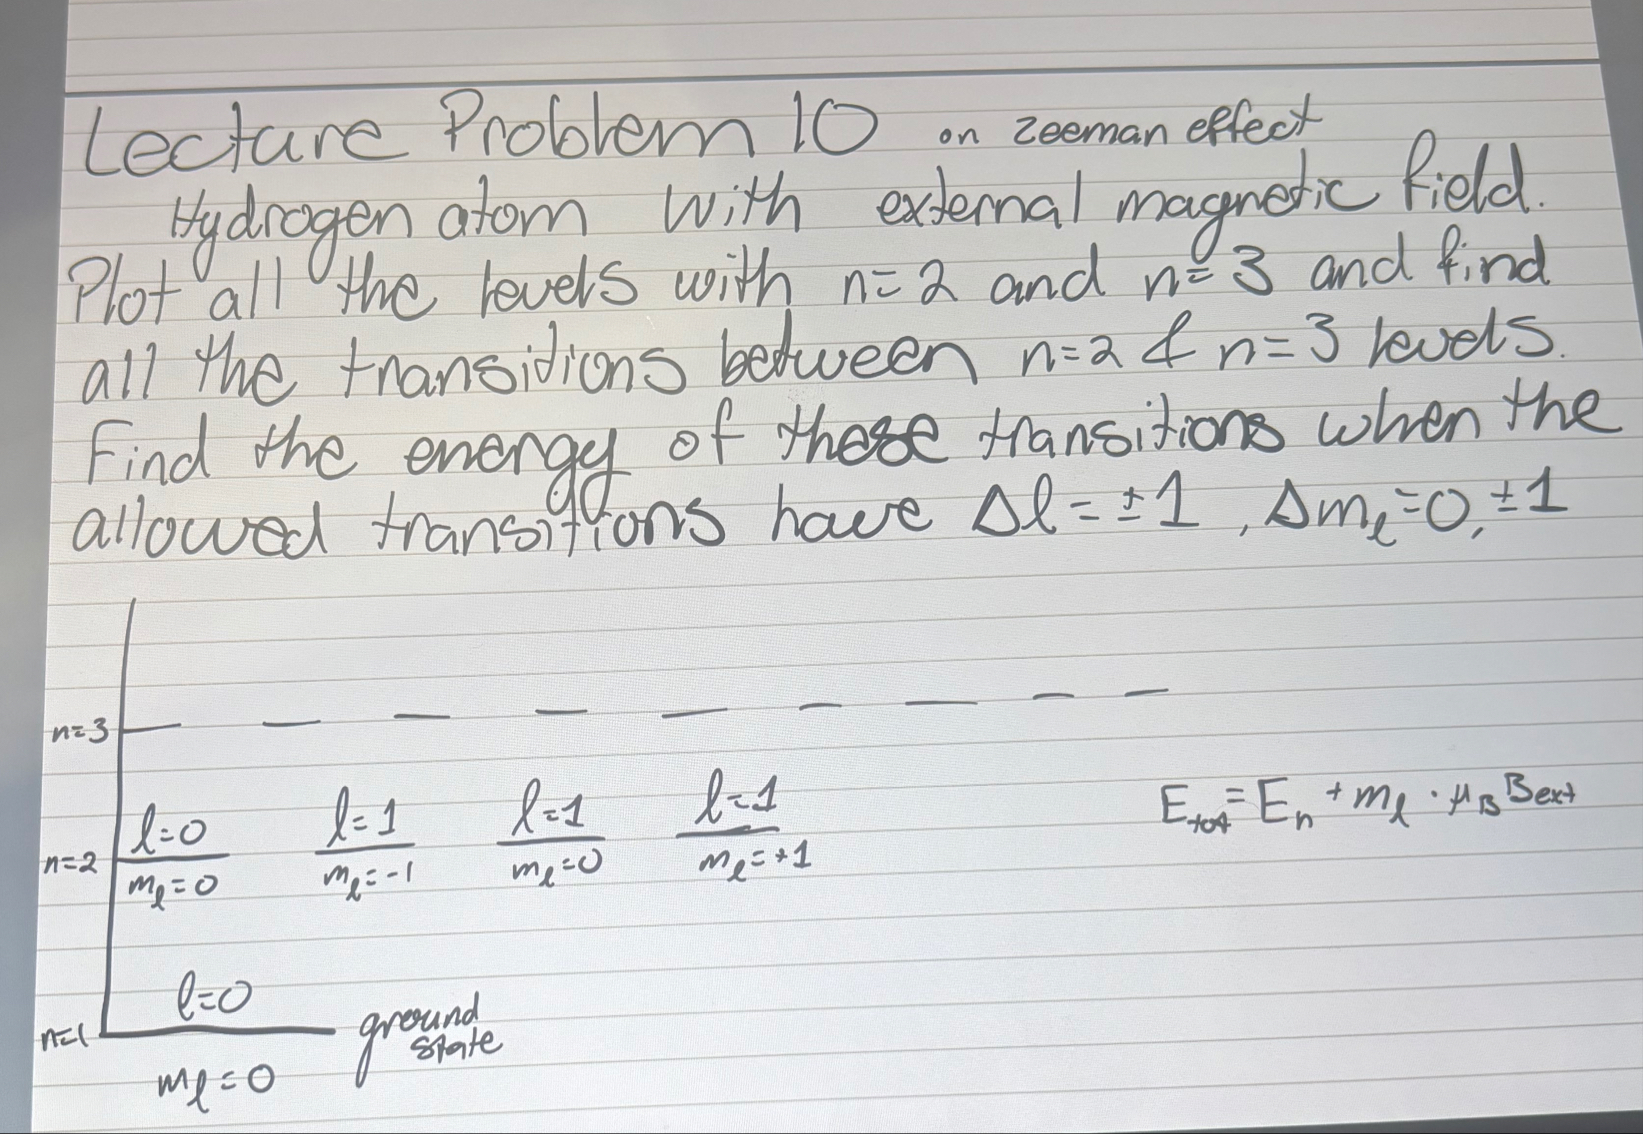 Lecture Problem 10 on zeeman effect
Hydrogen atom with external magnetic field.
Plot all the levels with n=2 and n=3 and find
all the transitions between n=2 & n=3 levels.
Find the energy of these transitions when the
allowed transitions have Δl=±1, Δm_l=0,±1
n=3
l=0 l=1 l=1 l=1
n=2
m_l=0 m_l=-1 m_l=0 m_l=+1
E_tot=E_n+m_l·μ_B B_ext
l=0
n=1 ground
state
m_l=0